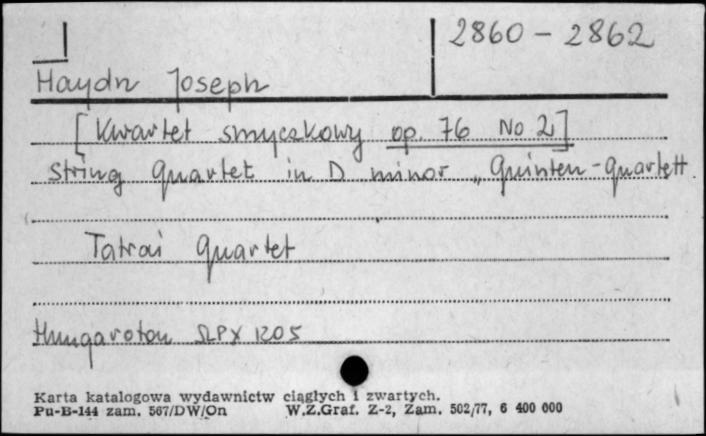 2860 - 2862
Haydn Joseph
[Kwartet smyczkowy op. 76 No 2]
String Quartet in D minor „Quinten-Quartett
Tatrai Quartet
Hungaroton SLPX 1205
Karta katalogowa wydawnictw ciągłych i zwartych.
Pu-B-144 zam. 567/DW/On W.Z.Graf. Z-2, Zam. 502/77, 6 400 000